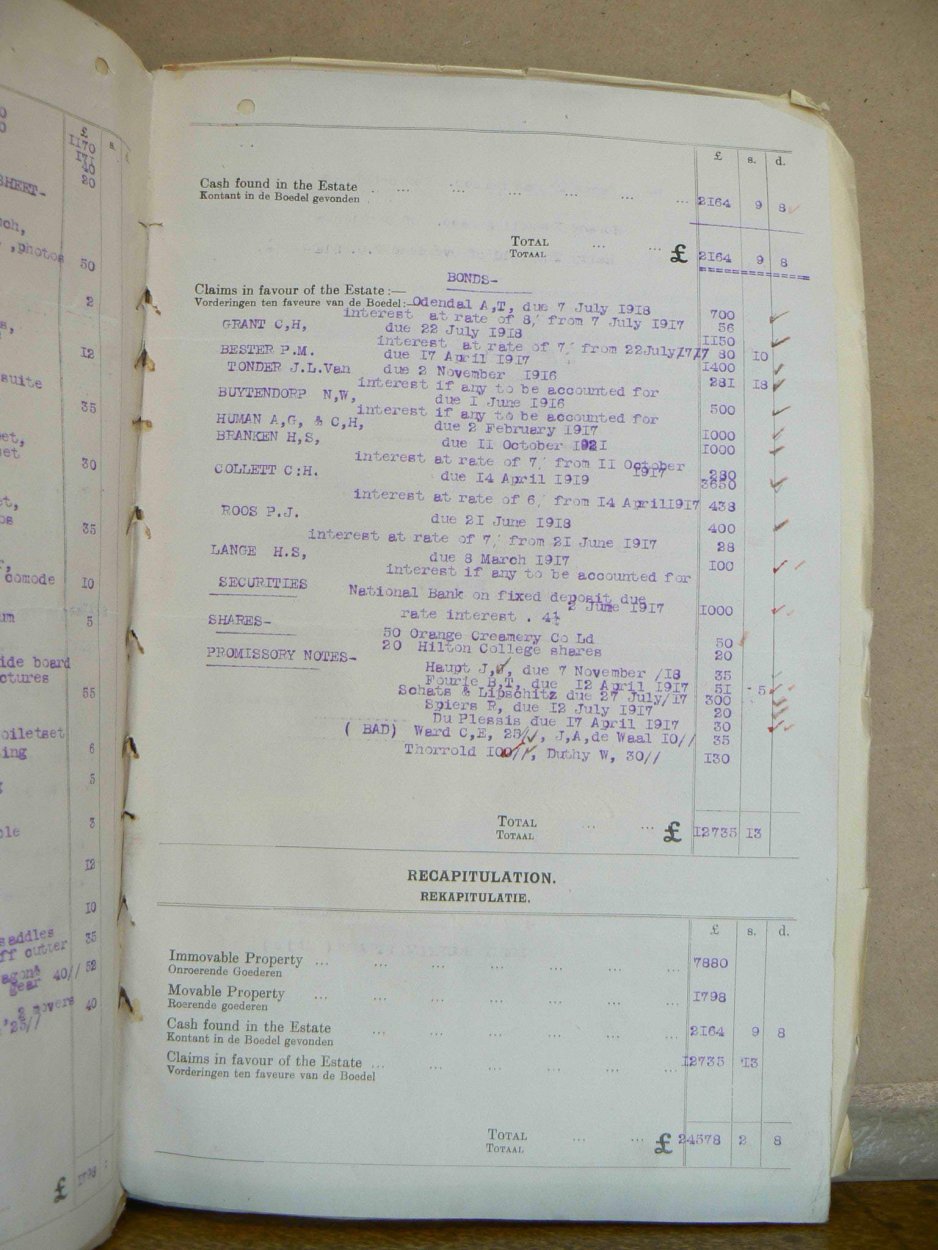 £ s.
1170
171
40
20
SHEET-
nch,
,photos
50
2
s,
12
suite
35
et,
set
30
et,
os
35
r,
comode
10
um
5
ide board
ctures
55
oiletset
ing
6
5
ole
3
12
10
saddles
ff cutter 35
agon&
gear 40// 52
2 movers 40
'25//
£ 1798
£ s. d.
Cash found in the Estate ... ... ... ... ... 2164 9 8
Kontant in de Boedel gevonden
TOTAL ... ... £ 2164 9 8
TOTAAL
BONDS-
Claims in favour of the Estate :—
Vorderingen ten faveure van de Boedel:- Odendal A,T, due 7 July 1918 700
interest at rate of 8,' from 7 July 1917 56
GRANT C,H, due 22 July 1918 1150
interest at rate of 7,' from 22July/17/17 80 10
BESTER P.M. due 17 April 1917 1400
TONDER J.L.Van due 2 November 1916 281 18
interest if any to be accounted for
BUYTENDORP N,W, due 1 June 1916 500
interest if any to be accounted for
HUMAN A,G, & C,H, due 2 February 1917 1000
BRANKEN H,S, due 11 October 1921 1000
interest at rate of 7,' from 11 October
1917 280
COLLETT C:H. due 14 April 1919 3650
interest at rate of 6,' from 14 April1917 438
ROOS P.J. due 21 June 1918 400
interest at rate of 7,' from 21 June 1917 28
LANGE H.S, due 8 March 1917 100
interest if any to be accounted for
SECURITIES National Bank on fixed deposit due
2 June 1917 1000
rate interest . 4½
SHARES-
50 Orange Creamery Co Ld 50
20 Hilton College shares 20
PROMISSORY NOTES-
Haupt J,J, due 7 November /18 35
Fourie B,T, due 12 April 1917 51 - 5
Schats & Lipschitz due 27 July/17 300
Spiers R, due 12 July 1917 20
Du Plessis due 17 April 1917 30
( BAD) Ward C,E, 25//, J,A,de Waal 10// 35
Thorrold 100//, Duthy W, 30// 130
TOTAL ... ... £ 12735 13
TOTAAL
RECAPITULATION.
REKAPITULATIE.
£ s. d.
Immovable Property ... ... ... ... ... ... 7880
Onroerende Goederen
Movable Property ... ... ... ... ... ... 1798
Roerende goederen
Cash found in the Estate ... ... ... ... ... 2164 9 8
Kontant in de Boedel gevonden
Claims in favour of the Estate ... ... ... ... ... 12735 13
Vorderingen ten faveure van de Boedel
TOTAL ... ... £ 24578 2 8
TOTAAL